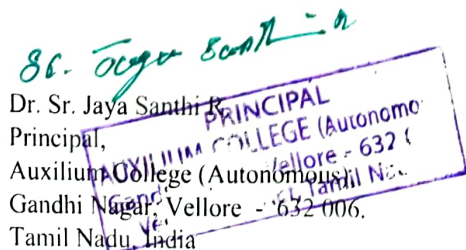 Dr. Sr. Jaya Santhi R
Principal,
Auxilium College (Autonomous)
Gandhi Nagar, Vellore - 632 006.
Tamil Nadu, India
PRINCIPAL
AUXILIUM COLLEGE (Autonomo
Gand Vellore - 632
Tamil N